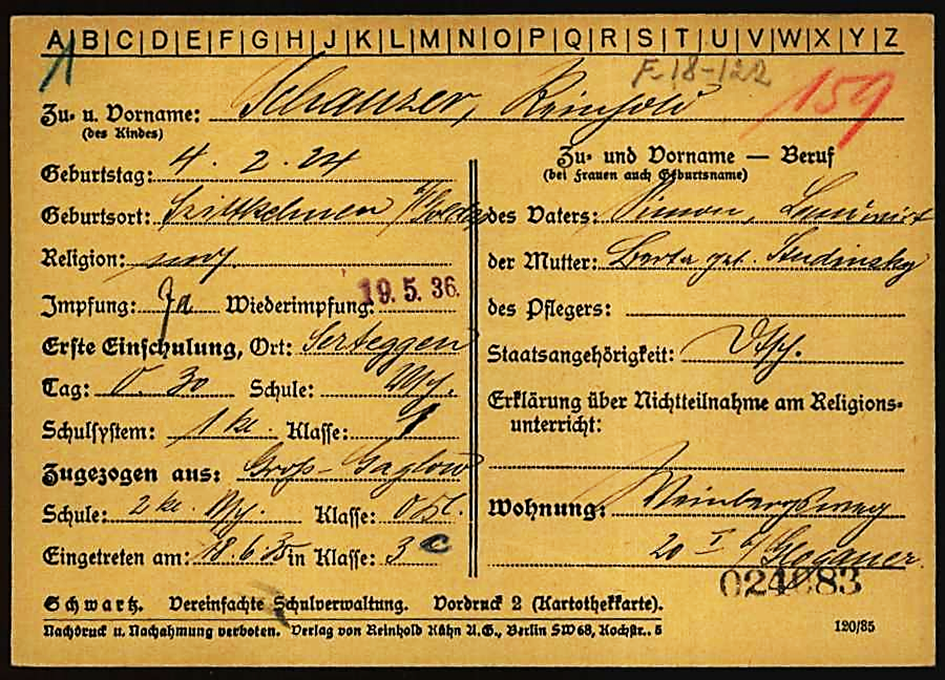 A|B|C|D|E|F|G|H|J|K|L|M|N|O|P|Q|R|S|T|U|V|W|X|Y|Z
1
F 18-122
159
Zu- u. Vorname: Schauzer, Reinhold
(des Kindes)
Geburtstag: 4. 2. 24
Geburtsort:
Religion:
Impfung: Ja Wiederimpfung: 19. 5. 36.
Erste Einschulung, Ort: Serteggen
Tag: O. 30 Schule:
Schulsystem: 1 kl. Klasse:
Zugezogen aus: Groß-Gaglow
Schule: 2 kl. Klasse:
Eingetreten am: 18. 6. 35 in Klasse: 3 c
Zu- und Vorname — Beruf
(bei Frauen auch Geburtsname)
des Vaters: Simon,
der Mutter: Berta geb. Studinsky
des Pflegers:
Staatsangehörigkeit: Dtsch.
Erklärung über Nichtteilnahme am Religions-
unterricht:
Wohnung: Weinbergsweg
20 I b/Glogauer
024083
Schwartz. Vereinfachte Schulverwaltung. Vordruck 2 (Kartothekkarte).
Nachdruck u. Nachahmung verboten. Verlag von Reinhold Kühn A.G., Berlin SW68, Kochstr. 5
120/35